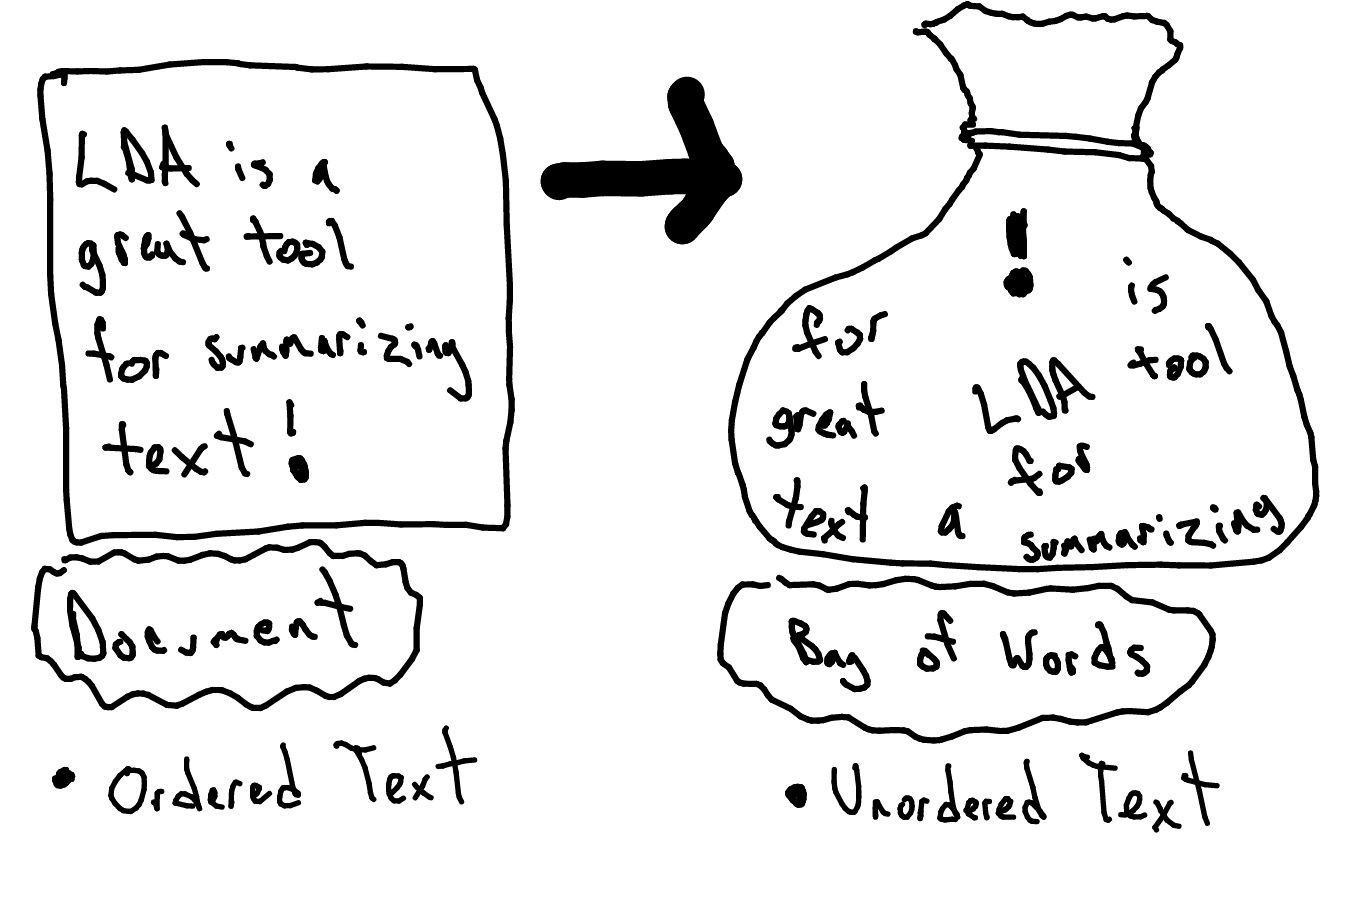 LDA is a
great tool
for summarizing
text!
Document
• Ordered Text
!
is
for
tool
LDA
great
for
text a summarizing
Bag of Words
• Unordered Text